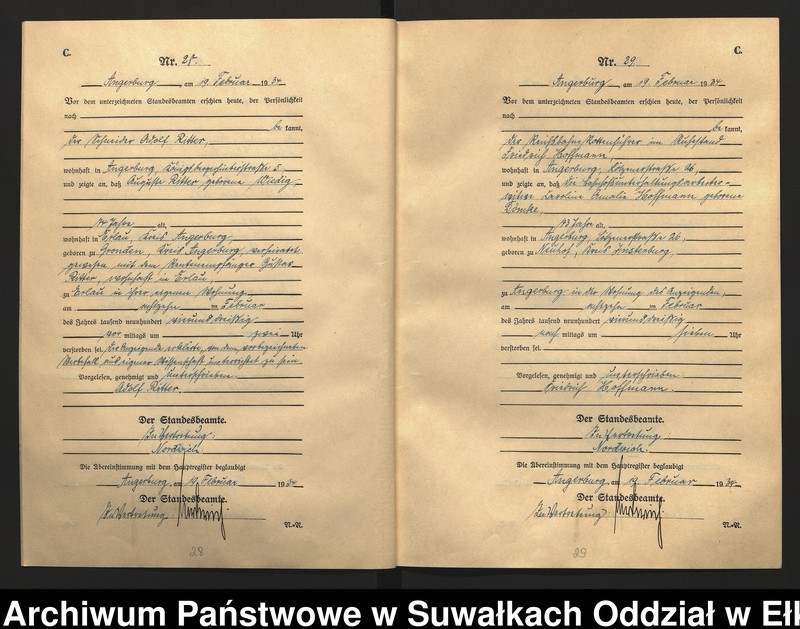 C.
Nr. 28.
Angerburg, am 19 Februar 1934
Vor dem unterzeichneten Standesbeamten erschien heute, der Persönlichkeit
nach
be kannt,
der Schneider Adolf Ritter,
wohnhaft in Angerburg, Königbergerhinterstraße 5
und zeigte an, daß Auguste Ritter geborene
74 Jahre alt,
wohnhaft in Erlau, Kreis Angerburg,
geboren zu Gronden, Kreis Angerburg, verheiratet
gewesen mit dem Rentenempfänger Gustav
Ritter, wohnhaft in Erlau
zu Erlau in ihrer eigenen Wohnung
am achtzehn ten Februar
des Jahres tausend neunhundert vierunddreißig
vor mittags um zwei Uhr
verstorben sei. Der Anzeigende erklärte, von dem vorbezeichneten
Sterbefall aus eigener Wissenschaft unterrichtet zu sein.
Vorgelesen, genehmigt und unterschrieben
Adolf Ritter.
Der Standesbeamte.
In Vertretung:
Die Übereinstimmung mit dem Hauptregister beglaubigt
Angerburg, am 19 Februar 1934
Der Standesbeamte.
In Vertretung:
28
C.
Nr. 29.
Angerburg, am 19 Februar 1934
Vor dem unterzeichneten Standesbeamten erschien heute, der Persönlichkeit
nach
be kannt,
der Reichsbahn Rottenführer im Ruhestand
Friedrich Hoffmann
wohnhaft in Angerburg, 26,
und zeigte an, daß die Bahnhofsunterhaltungsarbeiter-
witwe Karoline Amalie Hoffmann geborene
73 Jahre alt,
wohnhaft in Angerburg, 26,
geboren zu Neuhof, Kreis Insterburg,
zu Angerburg in der Wohnung des Anzeigenden,
am achtzehn ten Februar
des Jahres tausend neunhundert vierunddreißig
nach mittags um sieben Uhr
verstorben sei.
Vorgelesen, genehmigt und unterschrieben
Friedrich Hoffmann.
Der Standesbeamte.
In Vertretung:
Die Übereinstimmung mit dem Hauptregister beglaubigt
Angerburg, am 19 Februar 1934
Der Standesbeamte.
In Vertretung:
29
Archiwum Państwowe w Suwałkach Oddział w Ełk